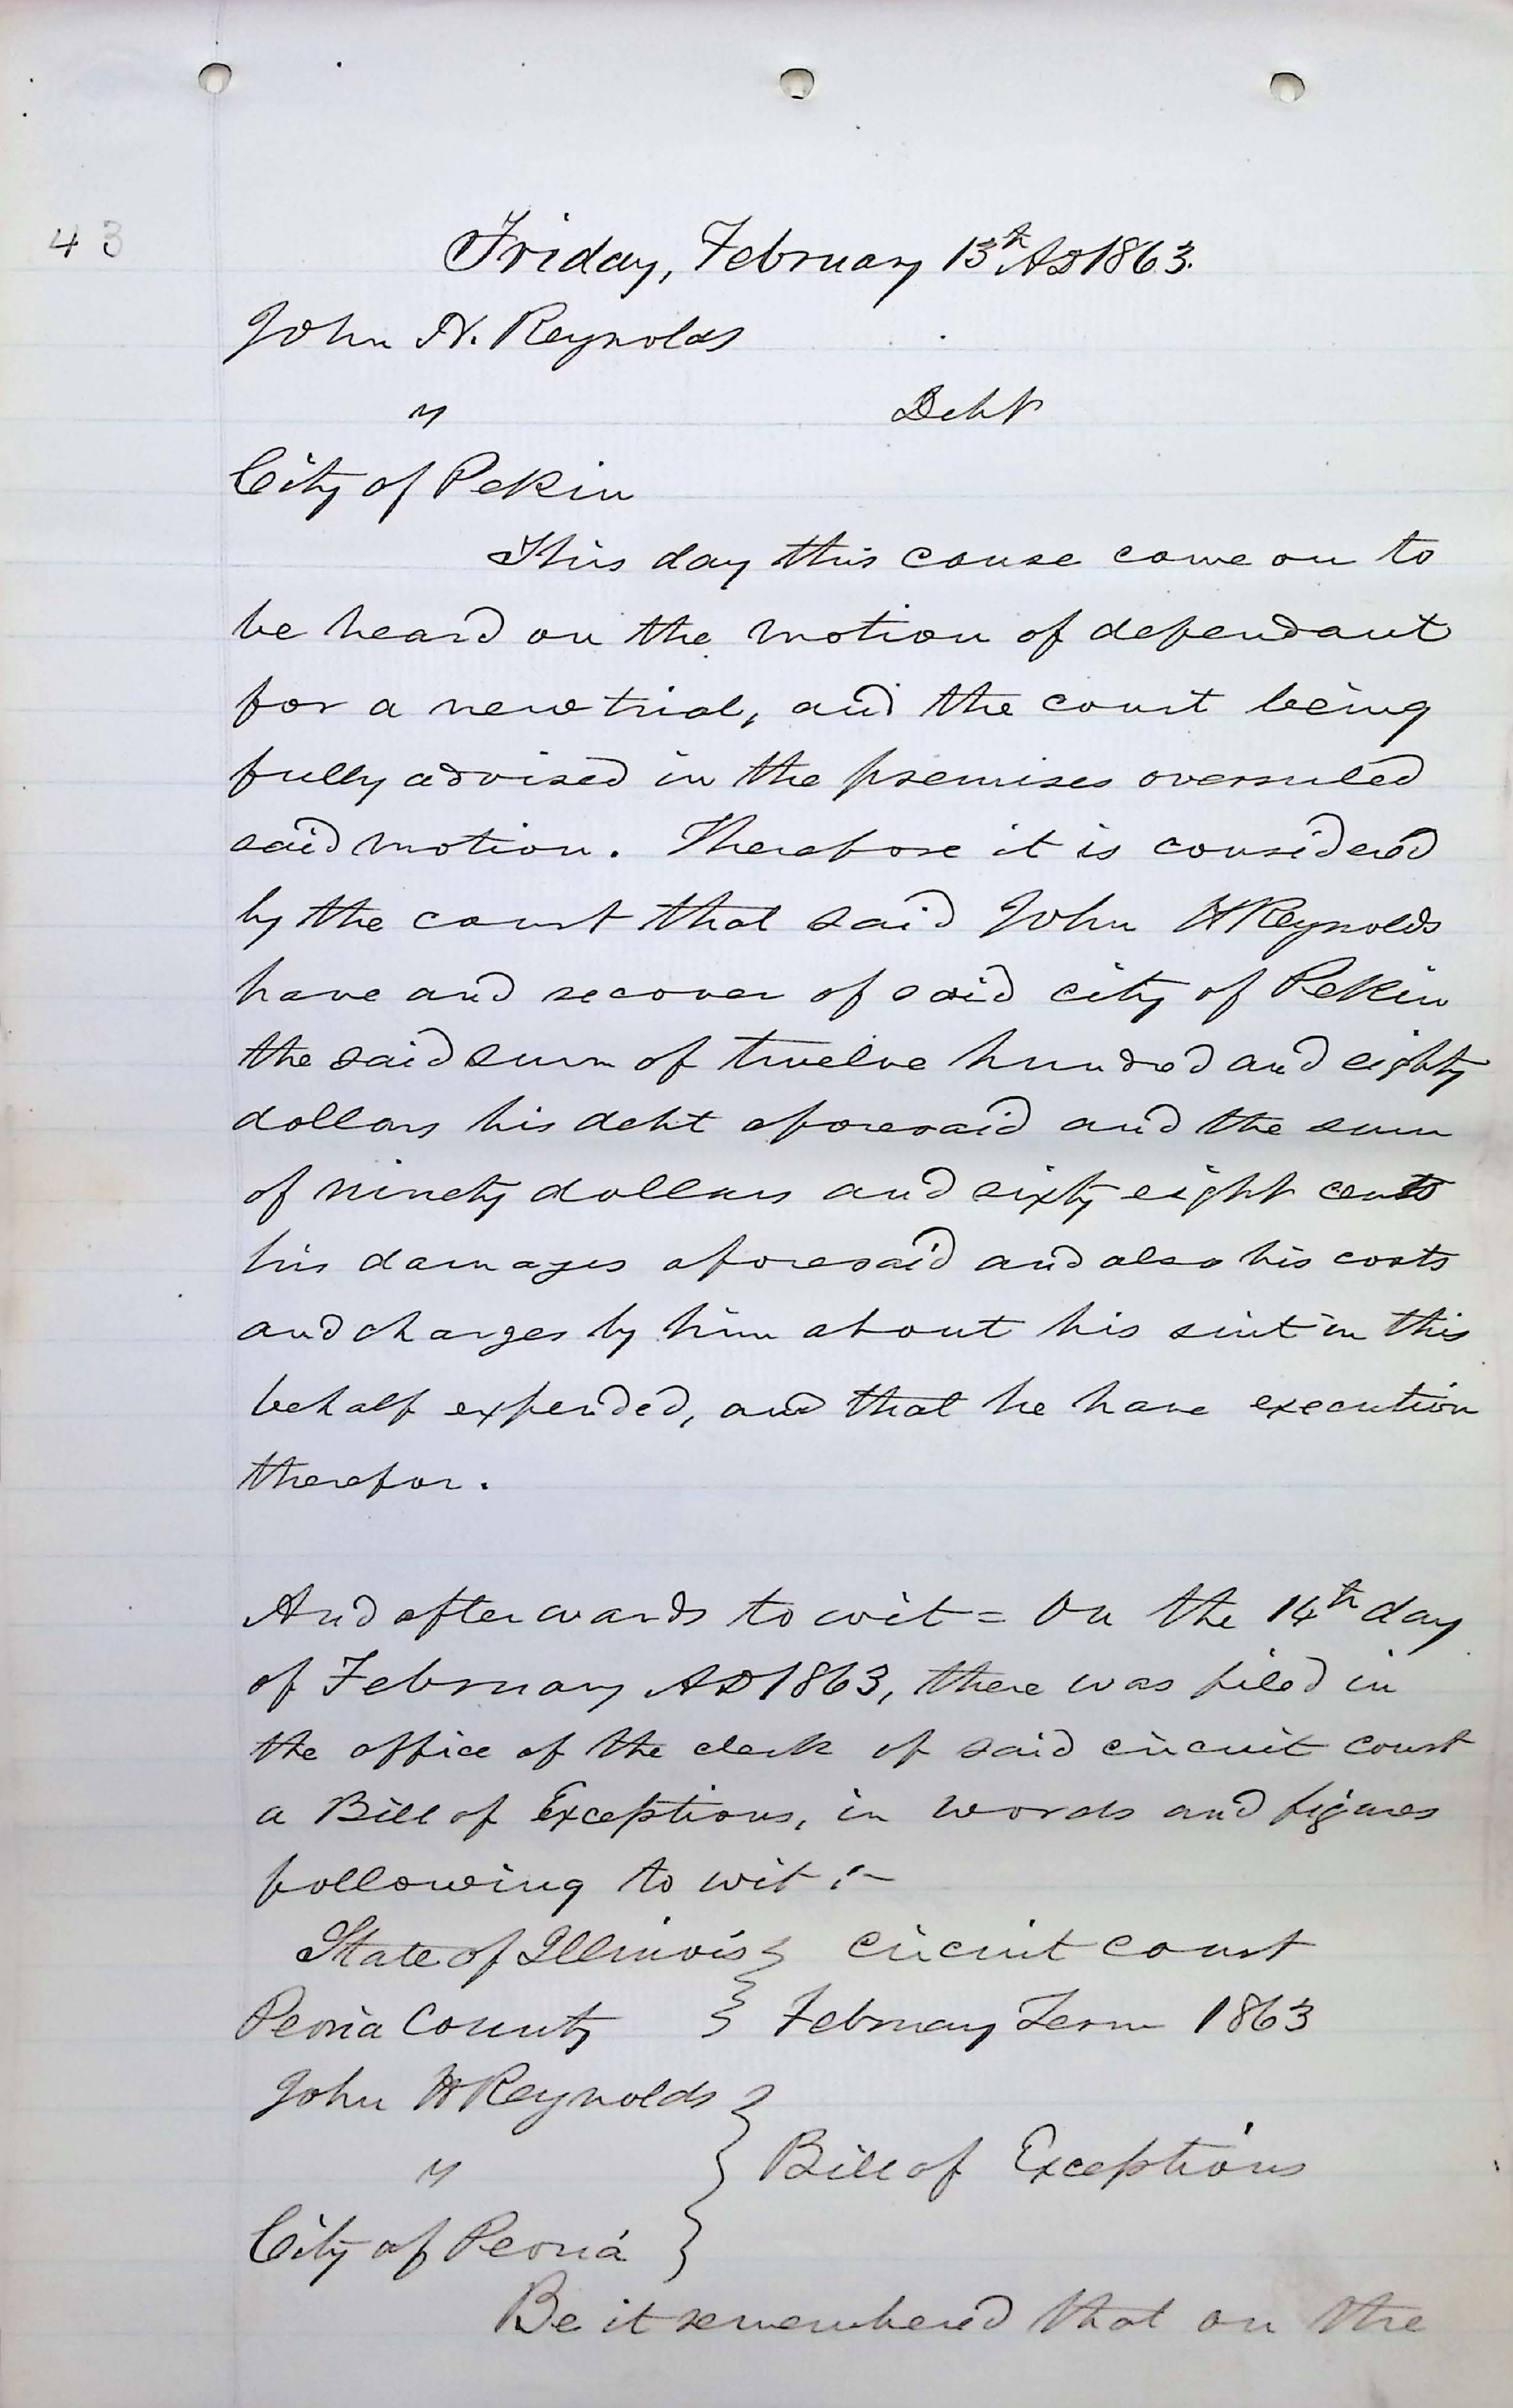 43
Friday, February 13th AD 1863.
John H. Reynolds
vs Debt
City of Pekin
This day this cause came on to
be heard on the motion of defendant
for a new trial, and the court being
fully advised in the premises overruled
said motion. Therefore it is considered
by the court that said John H Reynolds
have and recover of said city of Pekin
the said sum of twelve hundred and eighty
dollars his debt aforesaid and the sum
of ninety dollars and sixty eight cents
his damages aforesaid and also his costs
and charges by him about his suit in this
behalf expended, and that he have execution
therefor.
And afterwards to wit = On the 14th day
of February AD 1863, there was filed in
the office of the clerk of said circuit court
a Bill of Exceptions, in words and figures
following to wit :-
State of Illinois } circuit court
Peoria County } February Term 1863
John H Reynolds
vs } Bill of Exceptions
City of Peoria
Be it remembered that on the